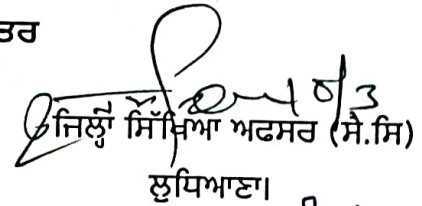 ਤਰ
ਜਿਲ੍ਹਾ ਸਿੱਖਿਆ ਅਫਸਰ (ਸੈ.ਸਿ)
ਲੁਧਿਆਣਾ।